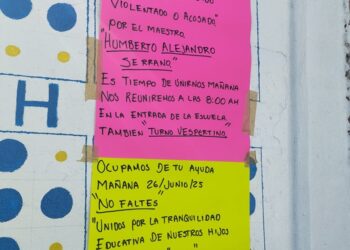 VIOLENTADO O ACOSADO
POR EL MAESTRO.
"HUMBERTO ALEJANDRO
SERRANO."
ES TIEMPO DE UNIRNOS MAÑANA
NOS REUNIREMOS A LAS 8:00 AM
EN LA ENTRADA DE LA ESCUELA.
TAMBIEN "TURNO VESPERTINO."
H
OCUPAMOS DE TU AYUDA
MAÑANA 26/JUNIO/25
"NO FALTES"
"UNIDOS POR LA TRANQUILIDAD
EDUCATIVA DE NUESTROS HIJOS